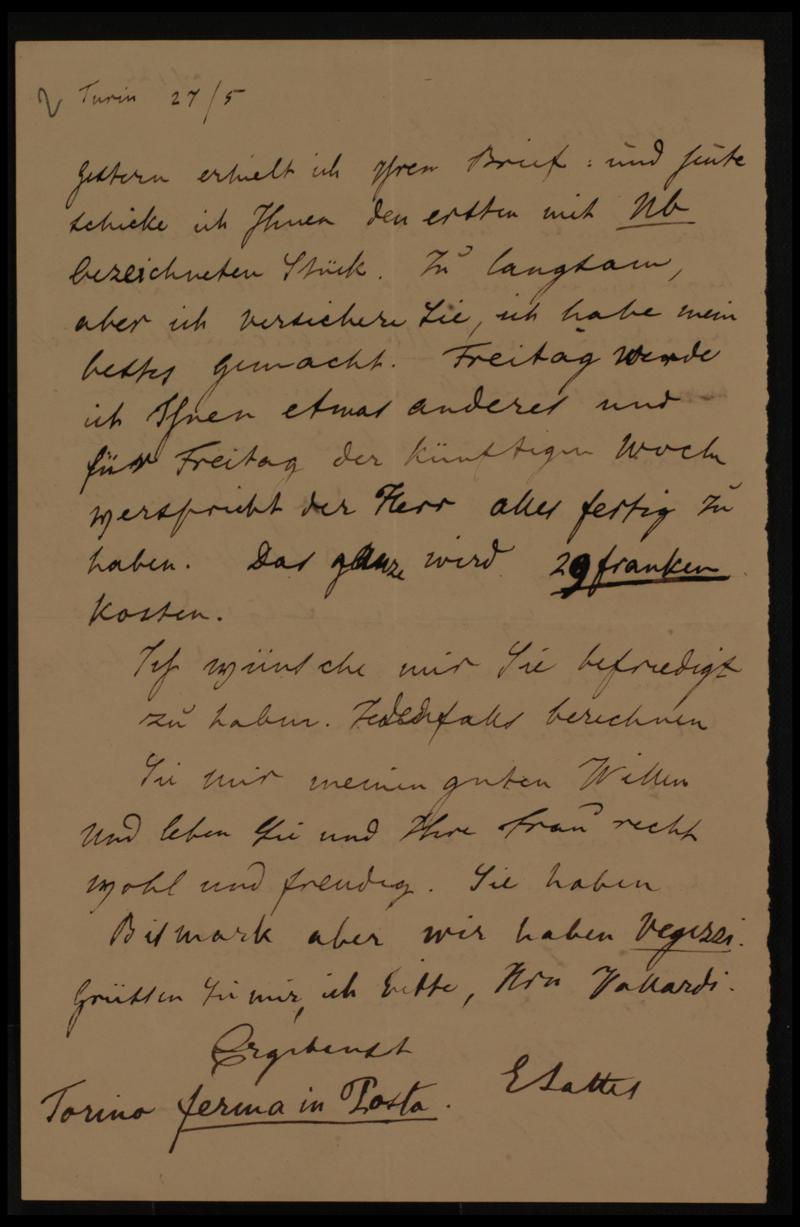 2 Turin 27/5
Gestern erhielt ich Ihren Brief: und heute
schicke ich Ihnen den ersten mit Nb
bezeichneten Stück. Zu langsam,
aber ich versichere Sie, ich habe mein
bestes gemacht. Freitag werde
ich Ihnen etwas anderes und
für Freitag der künftigen Woche
verspricht der Herr alles fertig zu
haben. Das ganze wird 29 franken
kosten.
Ich wünsche mir Sie befriedigt
zu haben. Jedenfalls berechnen
Sie mir meinen guten Willen
und leben Sie und Ihre Frau recht
wohl und freudig. Sie haben
Bismark aber wir haben Vegezzi.
Grüssen Sie mir, ich bitte, Hrn Vallardi.
Ergebenst
Torino ferma in Posta. E Lattes